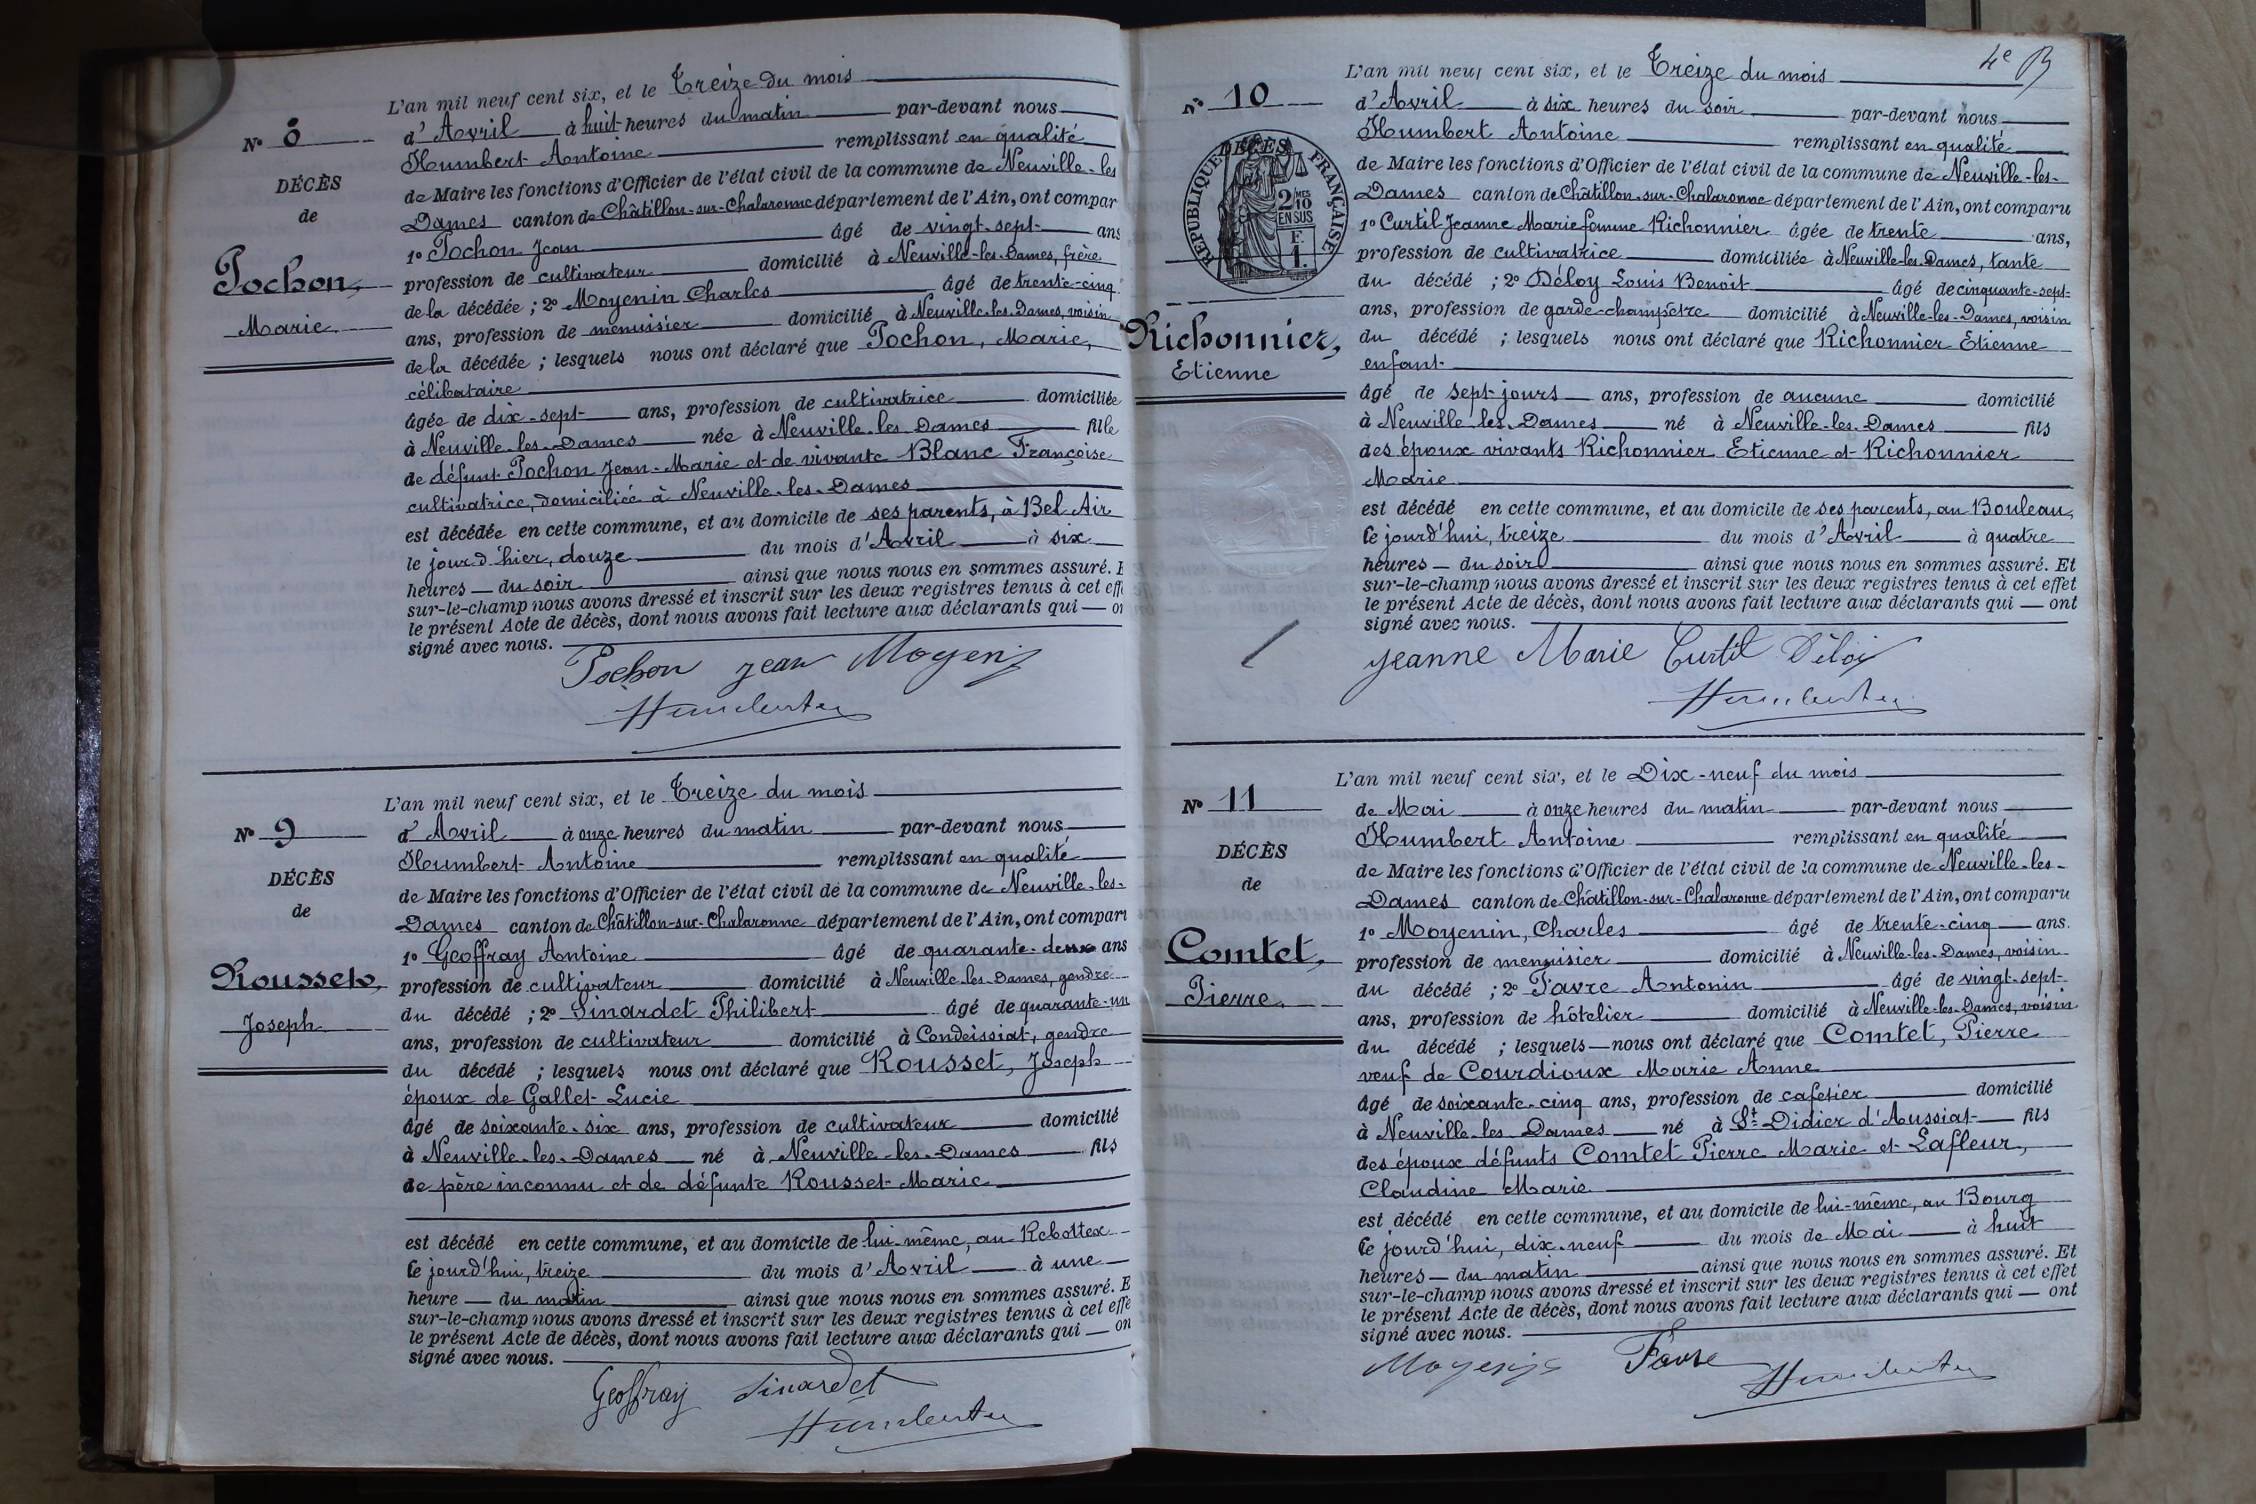 N° 8
DÉCÈS
de
Pochon,
Marie
L'an mil neuf cent six, et le Treize du mois
d'Avril à huit heures du matin par-devant nous
Humbert Antoine remplissant en qualité
de Maire les fonctions d'Officier de l'état civil de la commune de Neuville-les
Dames canton de Châtillon-sur-Chalaronne département de l'Ain, ont compar
1° Pochon Jean âgé de vingt-sept ans
profession de cultivateur domicilié à Neuville-les-Dames, frère
de la décédée ; 2° Moyenin Charles âgé de trente-cinq
ans, profession de menuisier domicilié à Neuville-les-Dames, voisin
de la décédée ; lesquels nous ont déclaré que Pochon, Marie,
célibataire
âgée de dix-sept ans, profession de cultivatrice domiciliée
à Neuville-les-Dames née à Neuville-les Dames fille
de défunt Pochon Jean-Marie et de vivante Blanc Françoise
cultivatrice, domiciliée à Neuville-les-Dames
est décédée en cette commune, et au domicile de ses parents, à Bel Air
le jour d'hier, douze du mois d'Avril à six
heures — du soir ainsi que nous nous en sommes assuré. E
sur-le-champ nous avons dressé et inscrit sur les deux registres tenus à cet eff
le présent Acte de décès, dont nous avons fait lecture aux déclarants qui — on
signé avec nous.
Pochon jean Moyenin
Humbert An
N° 9
DÉCÈS
de
Rousset,
Joseph
L'an mil neuf cent six, et le Treize du mois
d'Avril à onze heures du matin par-devant nous
Humbert Antoine remplissant en qualité
de Maire les fonctions d'Officier de l'état civil de la commune de Neuville-les-
Dames canton de Châtillon-sur-Chalaronne département de l'Ain, ont compar
1° Geoffray Antoine âgé de quarante-deux ans
profession de cultivateur domicilié à Neuville-les-Dames, gendre
du décédé ; 2° Sinardet Philibert âgé de quarante-un
ans, profession de cultivateur domicilié à Condeissiat, gendre
du décédé ; lesquels nous ont déclaré que Rousset, Joseph
époux de Gallet Lucie
âgé de soixante-six ans, profession de cultivateur domicilié
à Neuville-les-Dames né à Neuville-les-Dames fils
de père inconnu et de défunte Rousset Marie
est décédé en cette commune, et au domicile de lui-même, au Rebottex
le jourd'hui, treize du mois d'Avril à une
heure — du matin ainsi que nous nous en sommes assuré. E
sur-le-champ nous avons dressé et inscrit sur les deux registres tenus à cet effe
le présent Acte de décès, dont nous avons fait lecture aux déclarants qui — on
signé avec nous.
Geoffray Sinardet
Humbert An
4e
N° 10
REPUBLIQUE FRANÇAISE
DÉCÈS
2 MES
10
EN SUS
F.
1.
Richonnier,
Etienne
L'an mil neuf cent six, et le Treize du mois
d'Avril à six heures du soir par-devant nous
Humbert Antoine remplissant en qualité
de Maire les fonctions d'Officier de l'état civil de la commune de Neuville-les-
Dames canton de Châtillon-sur-Chalaronne département de l'Ain, ont comparu
1° Curtil Jeanne Marie femme Richonnier âgée de trente ans,
profession de cultivatrice domiciliée à Neuville-les-Dames, tante
du décédé ; 2° Déloy Louis Benoit âgé de cinquante-sept-
ans, profession de garde-champêtre domicilié à Neuville-les-Dames, voisin
du décédé ; lesquels nous ont déclaré que Richonnier Etienne
enfant
âgé de sept jours ans, profession de aucune domicilié
à Neuville-les-Dames né à Neuville-les-Dames fils
des époux vivants Richonnier Etienne et Richonnier
Marie
est décédé en cette commune, et au domicile de ses parents, au Bouleau,
le jourd'hui, treize du mois d'Avril à quatre
heures — du soir ainsi que nous nous en sommes assuré. Et
sur-le-champ nous avons dressé et inscrit sur les deux registres tenus à cet effet
le présent Acte de décès, dont nous avons fait lecture aux déclarants qui — ont
signé avec nous.
Jeanne Marie Curtil Déloy
Humbert An
N° 11
DÉCÈS
de
Comtet,
Pierre
L'an mil neuf cent six, et le Dix-neuf du mois
de Mai à onze heures du matin par-devant nous
Humbert Antoine remplissant en qualité
de Maire les fonctions d'Officier de l'état civil de la commune de Neuville-les-
Dames canton de Châtillon-sur-Chalaronne département de l'Ain, ont comparu
1° Moyenin, Charles âgé de trente-cinq ans.
profession de menuisier domicilié à Neuville-les-Dames, voisin
du décédé ; 2° Favre Antonin âgé de vingt-sept-
ans, profession de hôtelier domicilié à Neuville-les-Dames, voisin
du décédé ; lesquels — nous ont déclaré que Comtet, Pierre
veuf de Courdioux Marie Anne
âgé de soixante-cinq ans, profession de cafetier domicilié
à Neuville-les Dames né à St Didier d'Aussiat fils
des époux défunts Comtet Pierre Marie et Lafleur,
Claudine Marie
est décédé en cette commune, et au domicile de lui-même, au Bourg
le jourd'hui, dix-neuf du mois de Mai à huit
heures — du matin ainsi que nous nous en sommes assuré. Et
sur-le-champ nous avons dressé et inscrit sur les deux registres tenus à cet effet
le présent Acte de décès, dont nous avons fait lecture aux déclarants qui — ont
signé avec nous.
Moyenin Favre
Humbert An